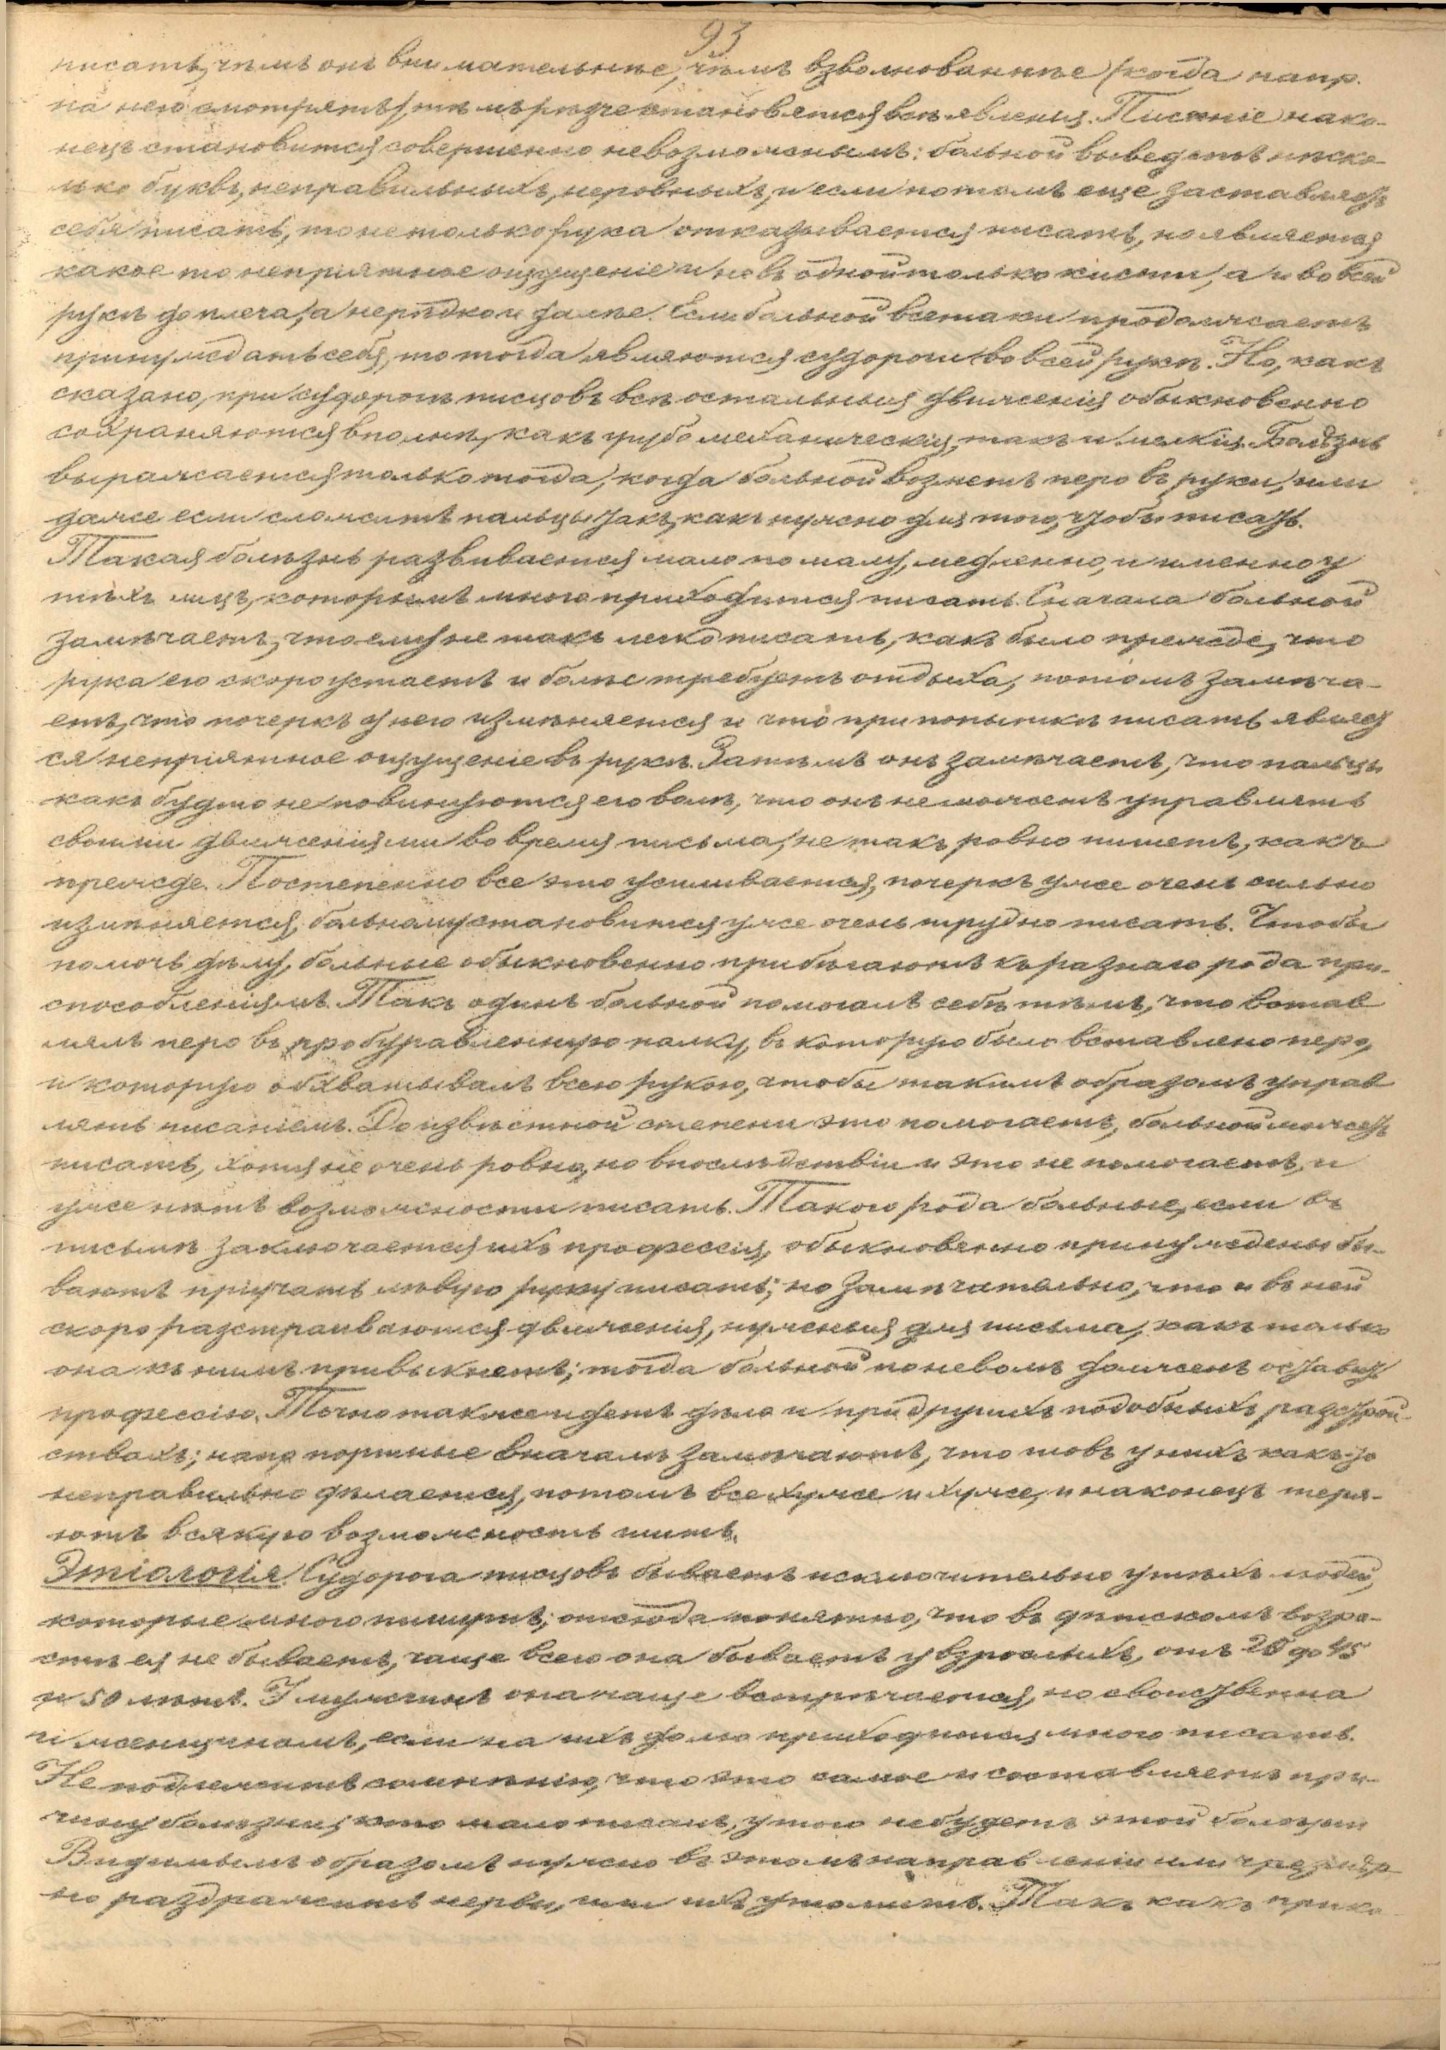 93
писать, чѣмъ онъ внимательнѣе, чѣмъ взволнованнѣе /когда напр.
на него смотрятъ/, тѣмъ рѣзче становятся всѣ явленія. Писаніе нако-
нецъ становится совершенно невозможнымъ: больной выведетъ нѣско-
лько буквъ, неправильныхъ, неровныхъ, и если потомъ еще заставляетъ
себя писать, то не только рука отказывается писать, но является
какое то непріятное ощущеніе и не въ одной только кисти, а и во всей
рукѣ до плеча, а нерѣдко и далѣе. Если больной всетаки продолжаетъ
принуждать себя, то тогда являются судороги во всей рукѣ. Но, какъ
сказано, при судорогѣ писцовъ всѣ остальныя движенія обыкновенно
сохраняются вполнѣ, какъ грубо механическія, такъ и мелкія. Болѣзнь
выражается только тогда, когда больной возметъ перо въ руки, или
даже если сложитъ пальцы такъ, какъ нужно для того, чтобы писать.
Такая болѣзнь развивается мало по малу, медленно, и именно у
тѣхъ лицъ, которымъ много приходится писать. Сначала больной
замѣчаетъ, что ему не такъ легко писать, какъ было прежде, что
рука его скоро устаетъ и болѣе требуетъ отдыха, потомъ замѣча-
етъ, что почеркъ у него измѣняется и что при попыткѣ писать являет
ся непріятное ощущеніе въ рукѣ. Затѣмъ онъ замѣчаетъ, что пальцы
какъ будто не повинуются его волѣ, что онъ не можетъ управлять
своими движеніями во время письма, не такъ ровно пишетъ, какъ
прежде. Постепенно все это усиливается, почеркъ уже очень сильно
измѣняется, больному становится уже очень трудно писать. Чтобы
помочь дѣлу, больные обыкновенно прибѣгаютъ къ разнаго рода при-
способленіямъ. Такъ одинъ больной помогалъ себѣ тѣмъ, что встав
лялъ перо въ пробуравленную палку, въ которую было вставлено перо,
и которую обхватывалъ всею рукою, чтобы такимъ образомъ управ
лять писаніемъ. До извѣстной степени это помогаетъ, больной можетъ
писать, хотя не очень ровно, но впослѣдствіи и это не помогаетъ, и
уже нѣтъ возможности писать. Такого рода больные, если въ
письмѣ заключается ихъ профессія, обыкновенно принуждены бы-
ваютъ пріучать лѣвую руку писать; но замѣчательно, что и въ ней
скоро разстраиваются движенія, нужныя для письма, какъ только
она къ нимъ привыкнетъ; тогда больной поневолѣ долженъ оставить
профессію. Точно также идетъ дѣло и при другихъ подобныхъ разстрой-
ствахъ; напр портные вначалѣ замѣчаютъ, что шовъ у нихъ какъ-то
неправильно дѣлается, потомъ все хуже и хуже, и наконецъ теря-
ютъ всякую возможность шить.
Этіологія. Судорога писцовъ бываетъ исключительно у тѣхъ людей,
которые много пишутъ; отсюда понятно, что въ дѣтскомъ возра-
стѣ ея не бываетъ, чаще всего она бываетъ у взрослыхъ, отъ 20 до 45
и 50 лѣтъ. У мужчинъ она чаще встрѣчается, но свойственна
и женщинамъ, если на ихъ долю приходится много писать.
Не подлежитъ сомнѣнію, что это самое и составляетъ при-
чину болѣзни; кто мало писалъ, у того не будетъ этой болѣзни
Видимымъ образомъ нужно въ этомъ направленіи или чрезмѣр
но раздражить нервы, или ихъ утомить. Такъ какъ при